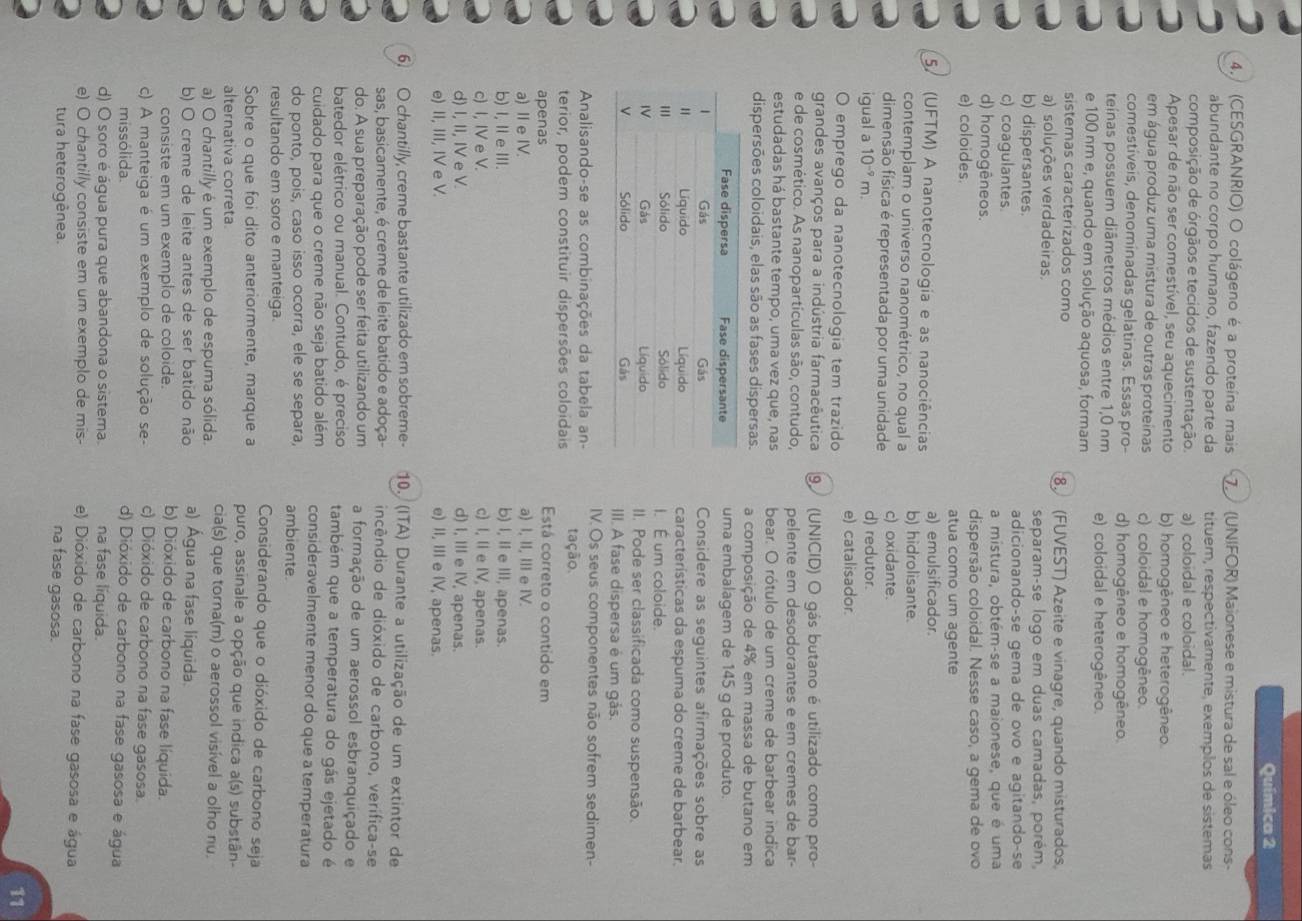 Química 2
4. (CESGRANRIO) O colágeno é a proteína mais
abundante no corpo humano, fazendo parte da
composição de órgãos e tecidos de sustentação.
Apesar de não ser comestível, seu aquecimento
em água produz uma mistura de outras proteínas
comestíveis, denominadas gelatinas. Essas pro-
teínas possuem diâmetros médios entre 1,0 nm
e 100 nm e, quando em solução aquosa, formam
sistemas caracterizados como
a) soluções verdadeiras.
b) dispersantes.
c) coagulantes.
d) homogêneos.
e) coloides.
5. (UFTM) A nanotecnologia e as nanociências
contemplam o universo nanométrico, no qual a
dimensão física é representada por uma unidade
igual a 10⁻⁹ m.
O emprego da nanotecnologia tem trazido
grandes avanços para a indústria farmacêutica
e de cosmético. As nanopartículas são, contudo,
estudadas há bastante tempo, uma vez que, nas
dispersões coloidais, elas são as fases dispersas.
Fase dispersa Fase dispersante
I Gás Gás
II Líquido Líquido
III Sólido Sólido
IV Gás Líquido
V Sólido Gás
Analisando-se as combinações da tabela an-
terior, podem constituir dispersões coloidais
apenas
a) II e IV.
b) I, II e III.
c) I, IV e V.
d) I, II, IV e V.
e) II, III, IV e V.
6. O chantilly, creme bastante utilizado em sobreme-
sas, basicamente, é creme de leite batido e adoça-
do. A sua preparação pode ser feita utilizando um
batedor elétrico ou manual. Contudo, é preciso
cuidado para que o creme não seja batido além
do ponto, pois, caso isso ocorra, ele se separa,
resultando em soro e manteiga.
Sobre o que foi dito anteriormente, marque a
alternativa correta.
a) O chantilly é um exemplo de espuma sólida.
b) O creme de leite antes de ser batido não
consiste em um exemplo de coloide.
c) A manteiga é um exemplo de solução se-
missólida.
d) O soro é água pura que abandona o sistema.
e) O chantilly consiste em um exemplo de mis-
tura heterogênea.
7. (UNIFOR) Maionese e mistura de sal e óleo cons-
tituem, respectivamente, exemplos de sistemas
a) coloidal e coloidal.
b) homogêneo e heterogêneo.
c) coloidal e homogêneo.
d) homogêneo e homogêneo.
e) coloidal e heterogêneo.
8. (FUVEST) Azeite e vinagre, quando misturados,
separam-se logo em duas camadas, porém,
adicionando-se gema de ovo e agitando-se
a mistura, obtém-se a maionese, que é uma
dispersão coloidal. Nesse caso, a gema de ovo
atua como um agente
a) emulsificador.
b) hidrolisante.
c) oxidante.
d) redutor.
e) catalisador.
9. (UNICID) O gás butano é utilizado como pro-
pelente em desodorantes e em cremes de bar-
bear. O rótulo de um creme de barbear indica
a composição de 4% em massa de butano em
uma embalagem de 145 g de produto.
Considere as seguintes afirmações sobre as
características da espuma do creme de barbear.
I. É um coloide.
II. Pode ser classificada como suspensão.
III. A fase dispersa é um gás.
IV. Os seus componentes não sofrem sedimen-
tação.
Está correto o contido em
a) I, II, III e IV.
b) I, II e III, apenas.
c) I, II e IV, apenas.
d) I, III e IV, apenas.
e) II, III e IV, apenas.
10. (ITA) Durante a utilização de um extintor de
incêndio de dióxido de carbono, verifica-se
a formação de um aerossol esbranquiçado e
também que a temperatura do gás ejetado é
consideravelmente menor do que a temperatura
ambiente.
Considerando que o dióxido de carbono seja
puro, assinale a opção que indica a(s) substân-
cia(s) que torna(m) o aerossol visível a olho nu.
a) Água na fase líquida.
b) Dióxido de carbono na fase líquida.
c) Dióxido de carbono na fase gasosa.
d) Dióxido de carbono na fase gasosa e água
na fase líquida.
e) Dióxido de carbono na fase gasosa e água
na fase gasosa.
11